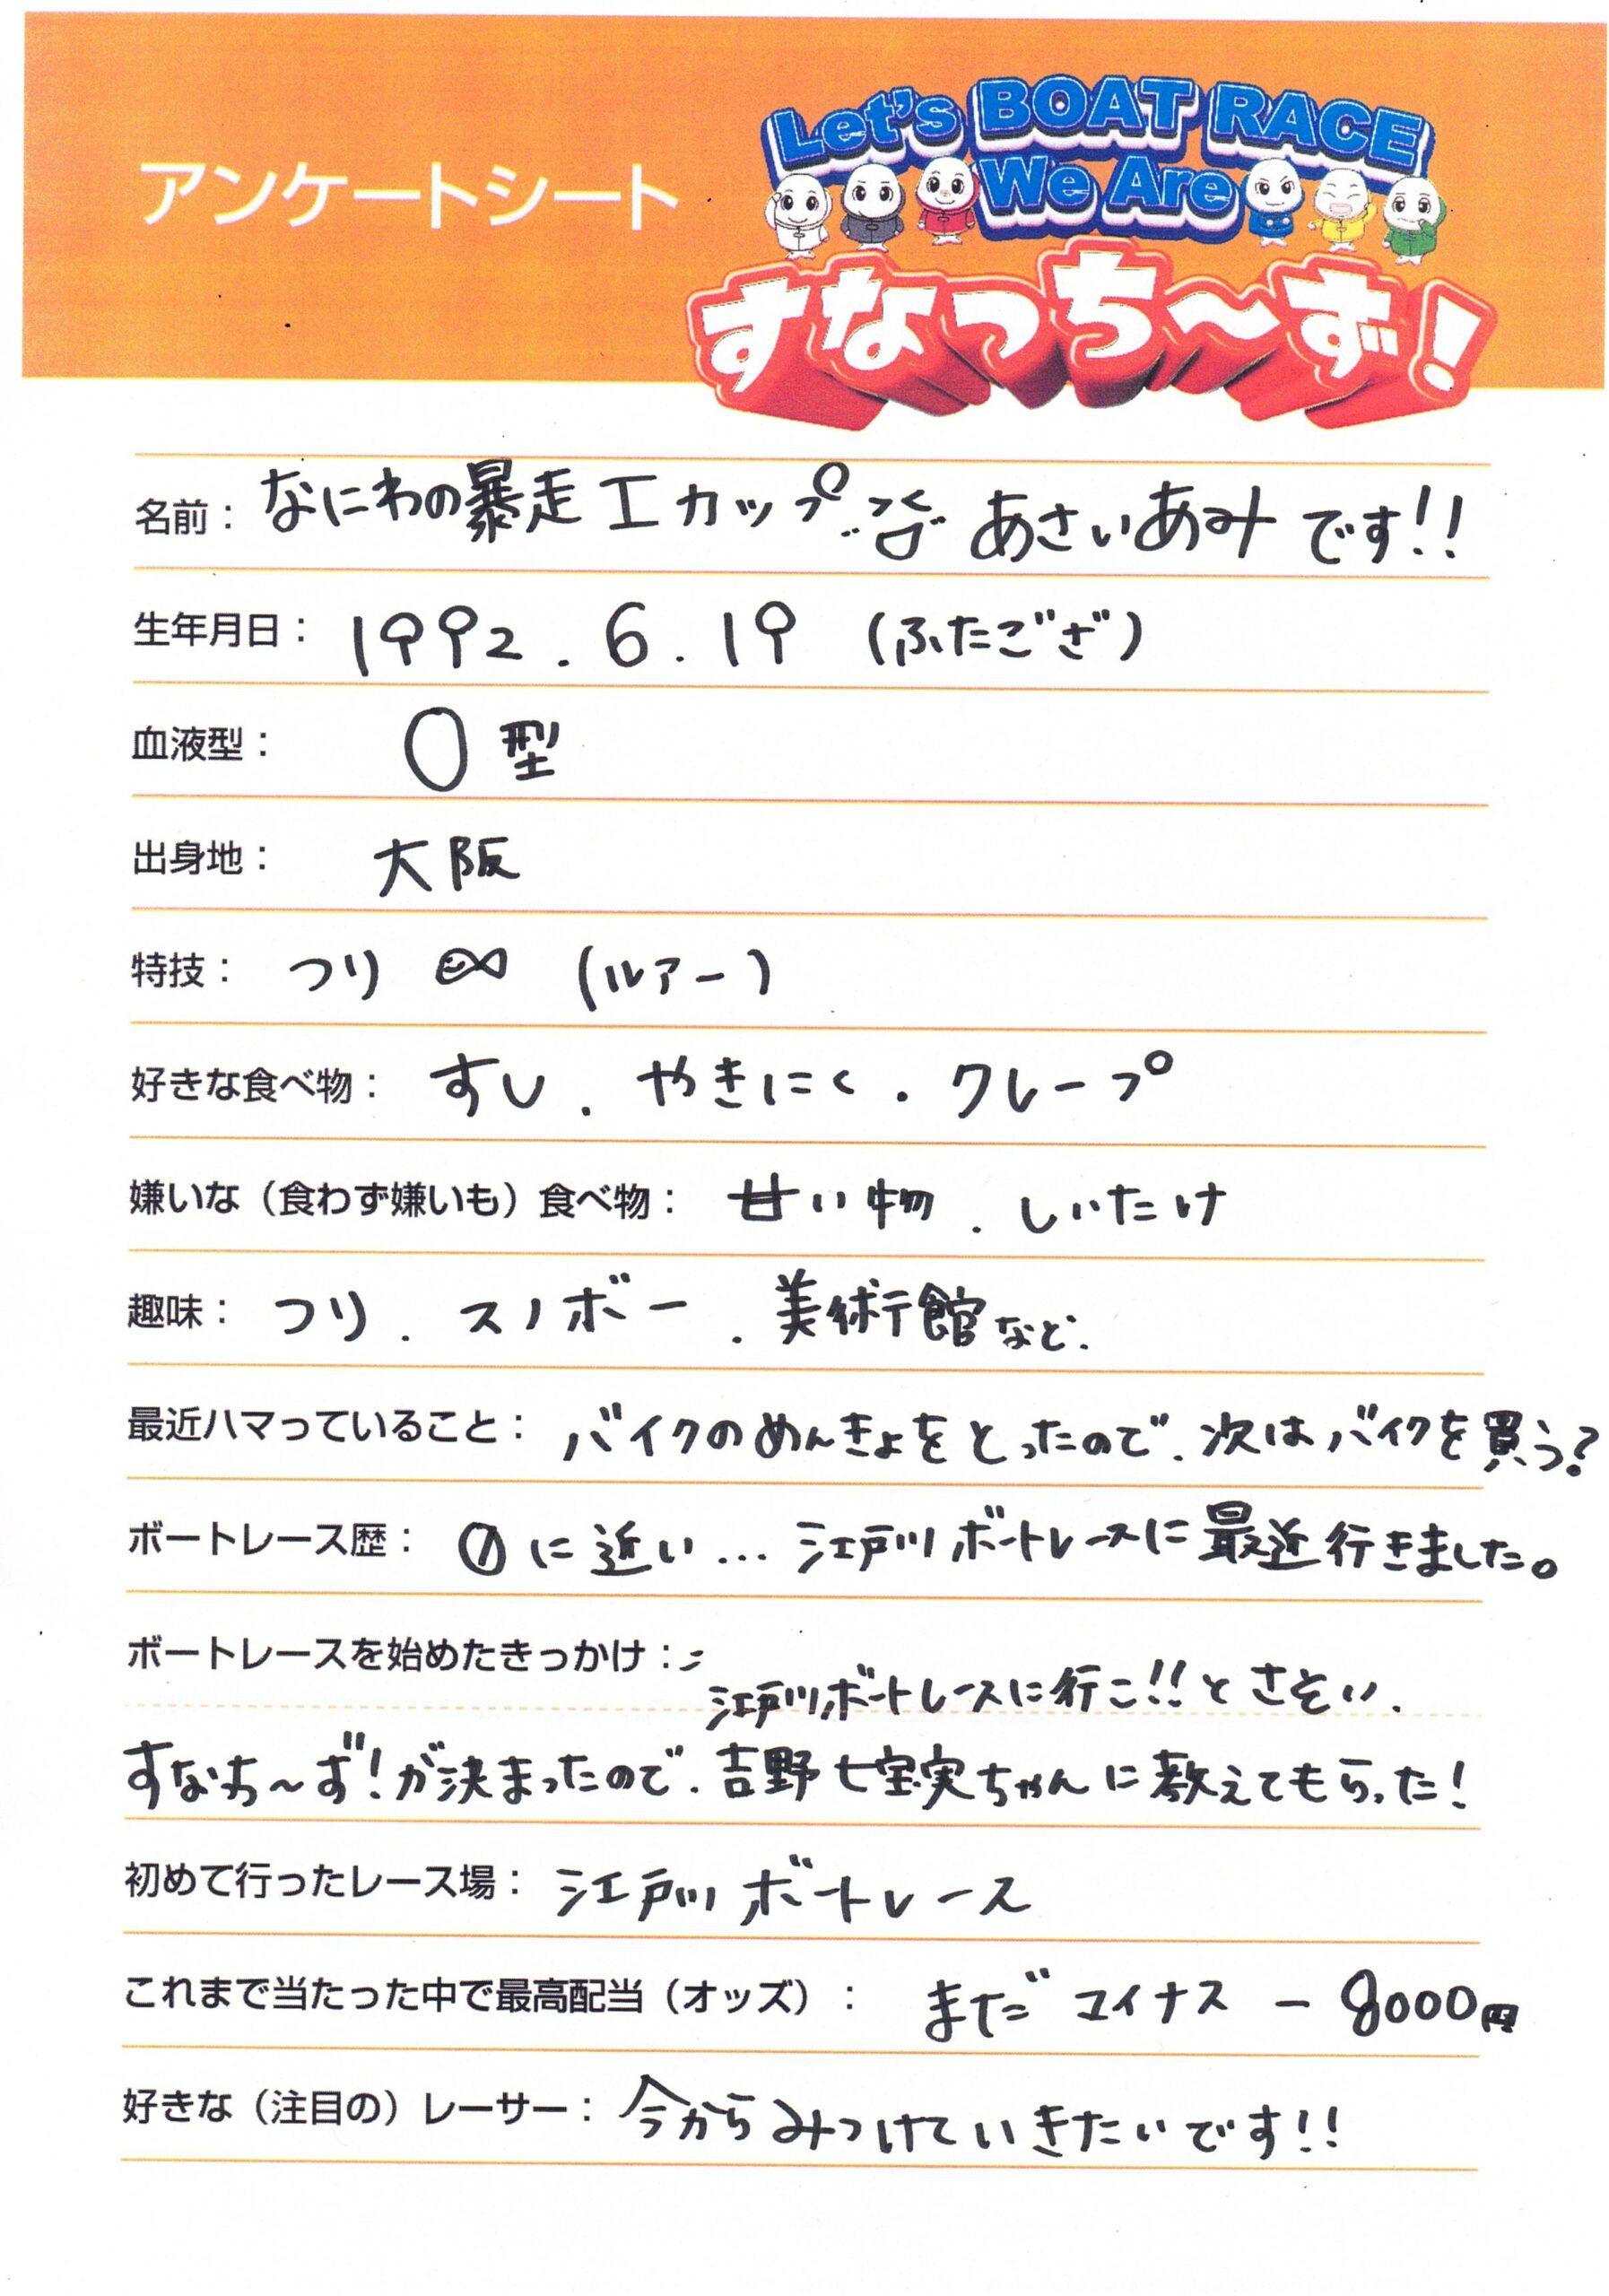 アンケートシート
Let's BOAT RACE
We Are
すなっち〜ず!
名前: なにわの暴走エカップ あさいあみです!!
生年月日: 1992.6.19 (ふたござ)
血液型: O型
出身地: 大阪
特技: つり (ルアー)
好きな食べ物: すし.やきにく.クレープ
嫌いな(食わず嫌いも)食べ物: 甘い物.しいたけ
趣味: つり.スノボー.美術館など.
最近ハマっていること: バイクのめんきょをとったので.次はバイクを買う?
ボートレース歴: 0に近い...江戸川ボートレースに最近行きました。
ボートレースを始めたきっかけ:
江戸川ボートレースに行こ!!とさそい.
すなち〜ず!が決まったので.吉野七宝実ちゃんに教えてもらった!
初めて行ったレース場: 江戸川ボートレース
これまで当たった中で最高配当(オッズ): まだマイナス -8000円
好きな(注目の)レーサー: 今からみつけていきたいです!!